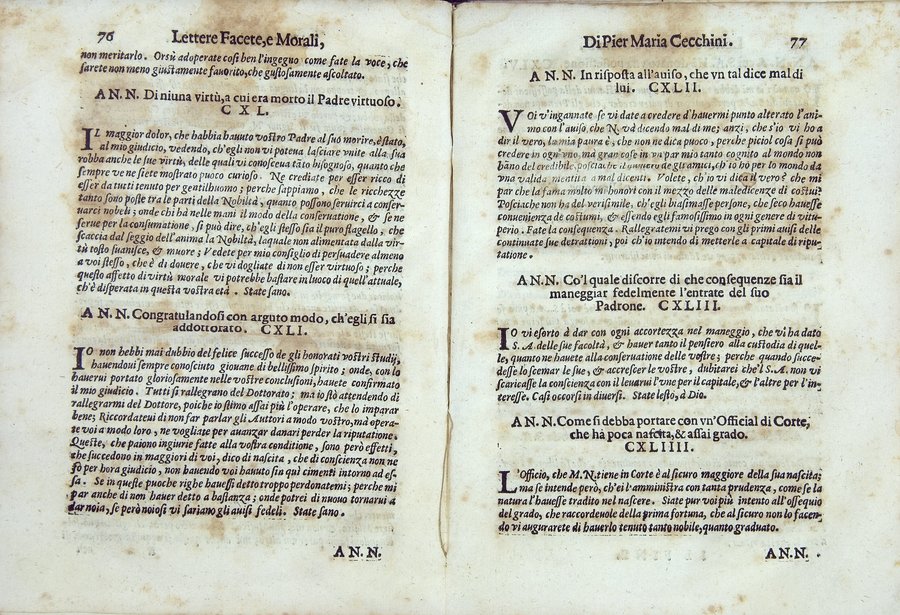 76 Lettere Facete, e Morali,
non meritarlo. Orsù adoperate così ben l'ingegno come fate la voce, che
sarete non meno giustamente fauorito, che gustosamente ascoltato.
A N. N. Di niuna virtù, a cui era morto il Padre virtuoso.
C X L.
IL maggior dolor, che habbia hauuto vostro Padre al suo morire, è stato,
al mio giudicio, vedendo, ch'egli non vi poteua lasciare vnite alla sua
robba anche le sue virtù, delle quali vi conosceua tãto bisognoso, quanto che
sempre ve ne siete mostrato puoco curioso. Ne crediate per esser ricco di
esser da tutti tenuto per gentilhuomo; perche sappiamo, che le ricchezze
tanto sono poste tra le parti della Nobiltà, quanto possono seruirci a conser-
uarci nobeli; onde chi hà nelle mani il modo della conseruatione, & se ne
serue per la consumatione, si può dire, ch'egli stesso sia il puro flagello, che
scaccia dal seggio dell'anima la Nobiltà, laquale non alimentata dalla vir-
tù tosto suanisce, & muore; Vedete per mio consiglio di persuadere almeno
a voi stesso, che è di douere, che vi dogliate di non esser virtuoso; perche
questo affetto di virtù morale vi potrebbe bastare in luoco di quell'attuale,
ch'è disperata in questa vostra età. State sano.
A N. N. Congratulandosi con arguto modo, ch'egli si sia
addottorato. CXLI.
IO non hebbi mai dubbio del felice successo de gli honorati vostri studij,
hauendoui sempre conosciuto giouane di bellissimo spirito; onde, con lo
hauerui portato gloriosamente nelle vostre conclusioni, hauete confirmato
il mio giudicio. Tutti si rallegrano del Dottorato; ma io stò attendendo di
rallegrarmi del Dottore, poiche io stimo assai più l'operare, che lo imparar
bene; Riccordateui di non far parlar gli Auttori a modo vostro, mà opera-
te voi a modo loro, ne vogliate per auanzar danari perder la riputatione.
Queste, che paiono ingiurie fatte alla vostra conditione, sono però effetti,
che succedono in maggiori di voi, dico di nascita, che di conscienza non ne
fò per hora giudicio, non hauendo voi hauuto sia qui cimenti intorno ad es-
sa. Se in queste puoche righe hauessi detto troppo perdonatemi; perche mi
par anche di non hauer detto a bastanza; onde potrei di nuouo tornarui a
dar noia, se però noiosi vi sariano gli auisi fedeli. State sano.
A N. N.
Di Pier Maria Cecchini. 77
A N. N. In risposta all'auiso, che vn tal dice mal di
lui. CXLII.
VOi v'ingannate se vi date a credere d'hauermi punto alterato l'ani-
mo con l'auiso, che N. và dicendo mal di me; anzi, che s'io vi hò a
dir il vero, la mia paura è, che non ne dica puoco, perche picciol cosa si può
credere in ogn'vno, ma gran cose in vn par mio tanto cognito al mondo non
hãno del credibile, posciache il douero de gli amici, ch'io hò per lo mondo dà
vna valida mentita a mal dicenti. Volete, ch'io vi dica il vero? che mi
par che la fama molto mi honori con il mezzo delle maledicenze di costui?
Posciache non hà del verisimile, ch'egli biasimasse persone, che seco hauesse
conuenienza de costumi, & essendo egli famosissimo in ogni genere di vitu-
perio. Fate la consequenza. Rallegratemi vi prego con gli primi auisi delle
continuate sue detrattioni, poi ch'io intendo di metterle a capitale di ripu-
tatione.
A N. N. Co'l quale discorre di che consequenze sia il
maneggiar fedelmente l'entrate del suo
Padrone. CXLIII.
IO vi esorto à dar con ogni accortezza nel maneggio, che vi hà dato
S. A. delle sue facoltà, & hauer tanto il pensiero alla custodia di quel-
le, quanto ne hauete alla conseruatione delle vostre; perche quando succe-
desse lo scemar le sue, & accrescer le vostre, dubitarei che'l S. A. non vi
scaricasse la conscienza con il leuarui l'vne per il capitale, & l'altre per l'in-
teresse. Casi occorsi in diuersi. State lesto, à Dio.
A N. N. Come si debba portare con vn'Official di Corte,
che hà poca nascita, & assai grado.
CXLIIII.
L'Officio, che M. N. tiene in Corte è al sicuro maggiore della sua nascita;
ma se intende però, ch'ei l'amministra con tanta prudenza, come se la
natura l'hauesse tradito nel nascere. Siate pur voi più intento all'ossequio
del grado, che raccordeuole della prima fortuna, che al sicuro non lo facen-
do vi augurarete di hauerlo tenuto tanto nobile, quanto graduato.
A N. N.